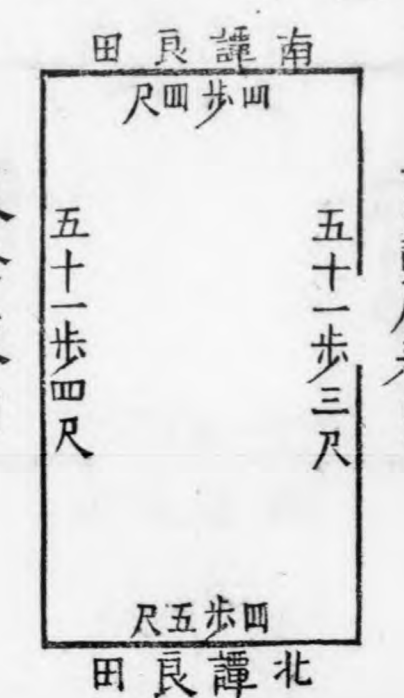 南譚良田
四步四尺
五十一步三尺
五十一步四尺
四步五尺
北譚良田